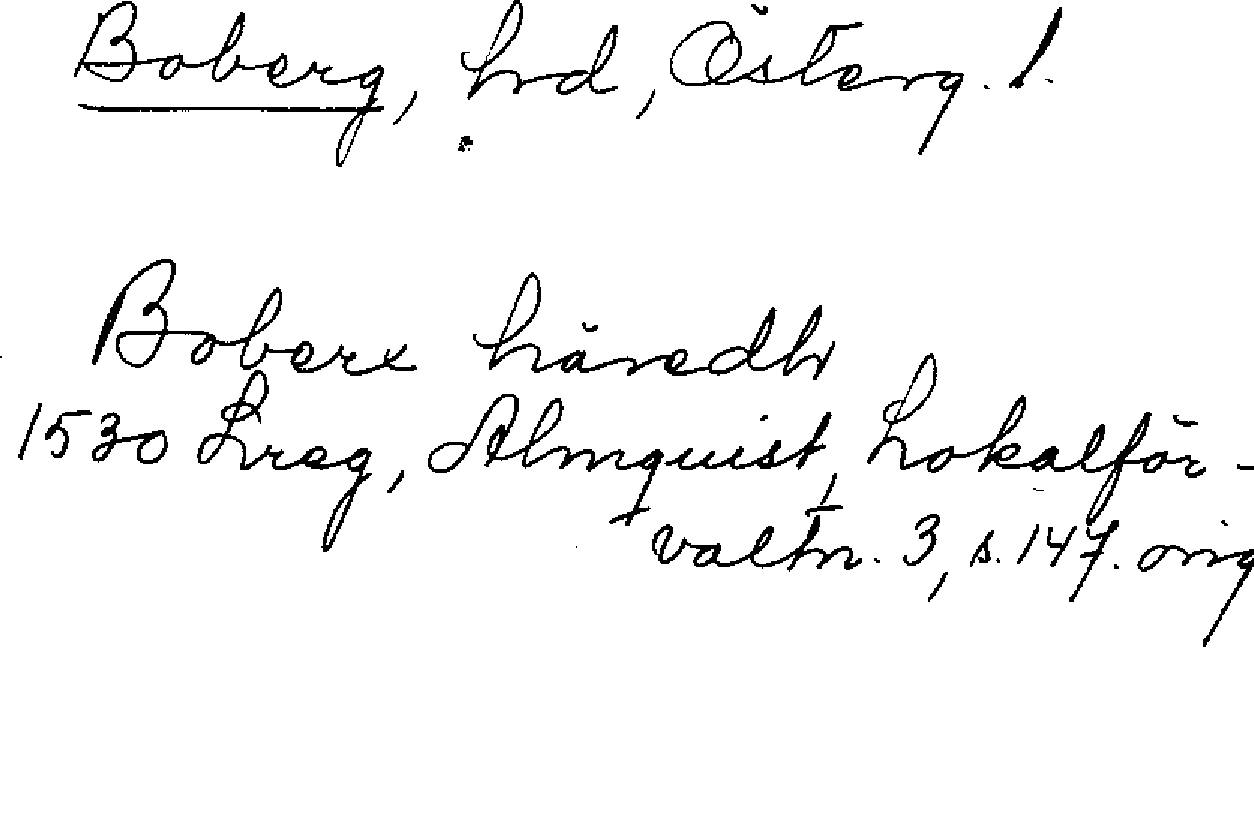 Boberg, hrd, Österg. l.
Boberx häredh
1530 Lreg, Almquist, Lokalför-
valtn. 3, s. 147. orig